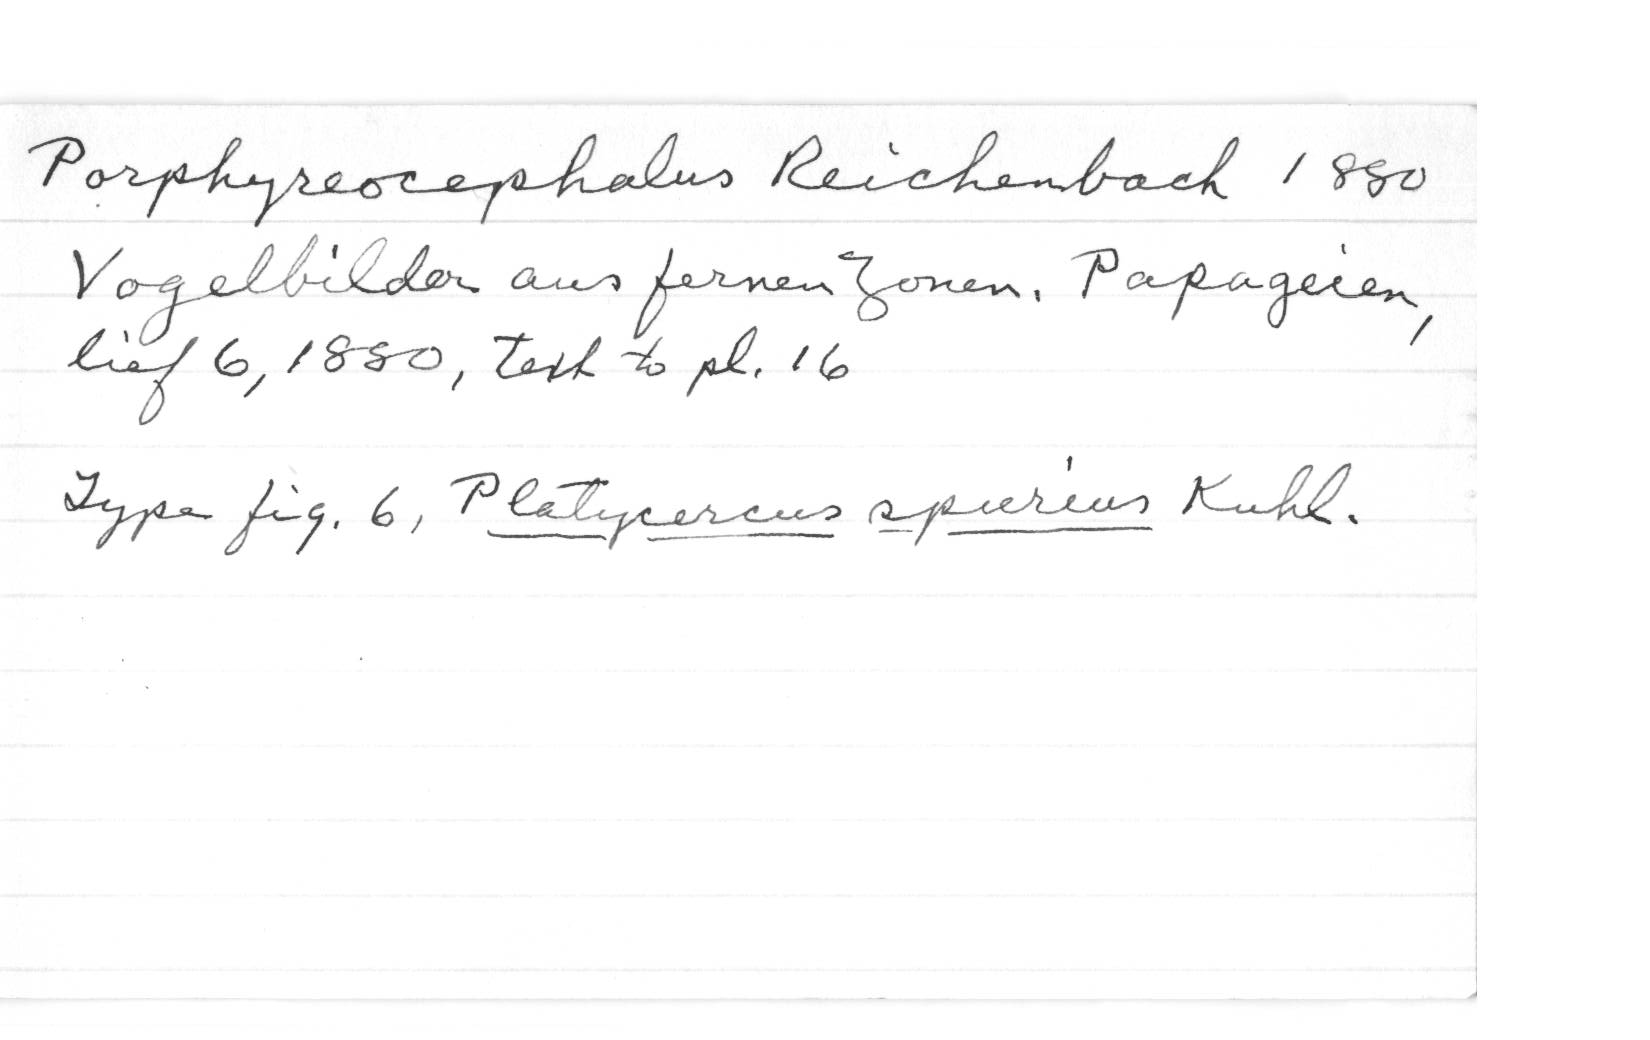 Porphyreocephalus Reichenbach 1880
Vogelbilder aus fernen Zonen. Papageien,
lief 6, 1880, text to pl. 16
Type fig. 6, Platycercus spurius Kuhl.